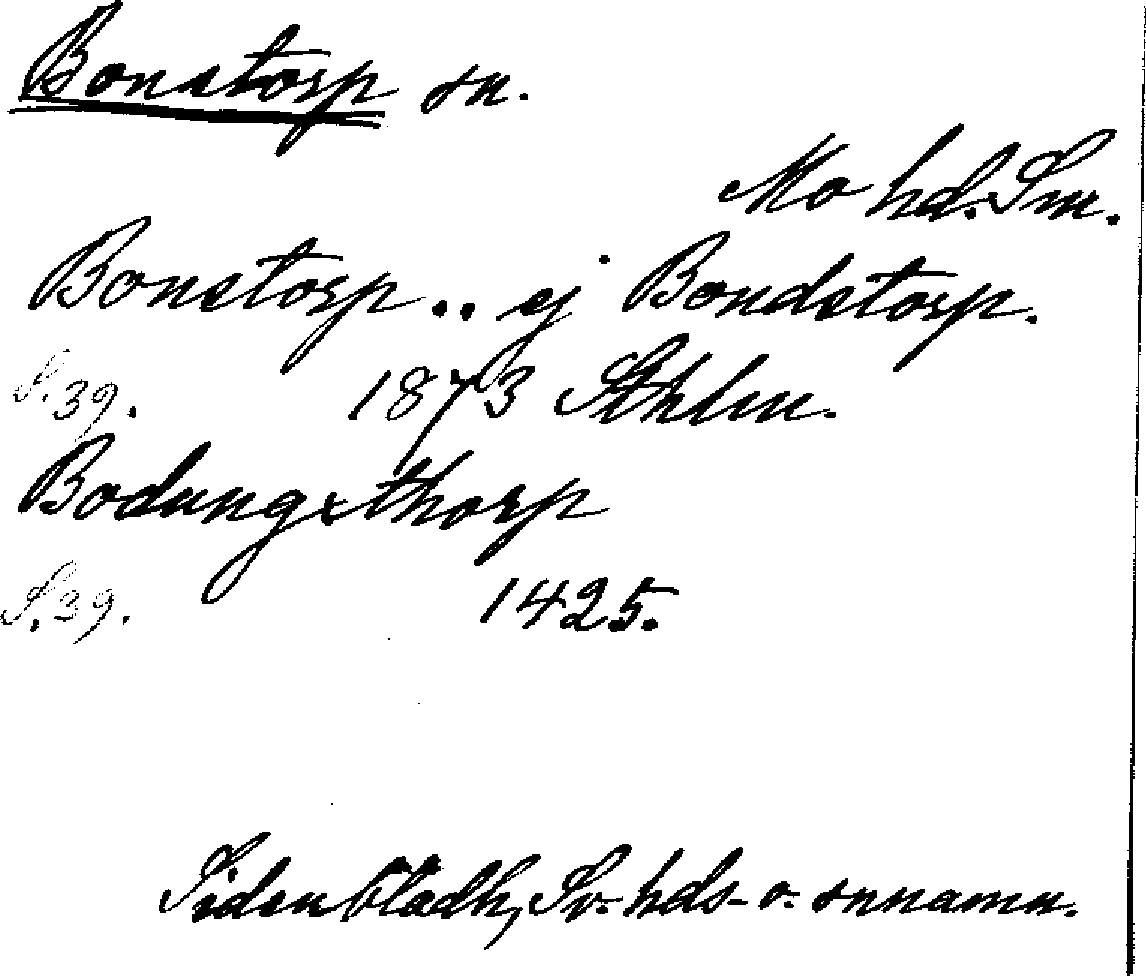 Bonstorp sn.
Mo hd. Sm.
Bonstorp .. ej Bondstorp.
S. 39. 1873 Sthlm.
Bodungxthorp
S. 39. 1425.
Sidenbladh, Sv. hds- o. snnamn.